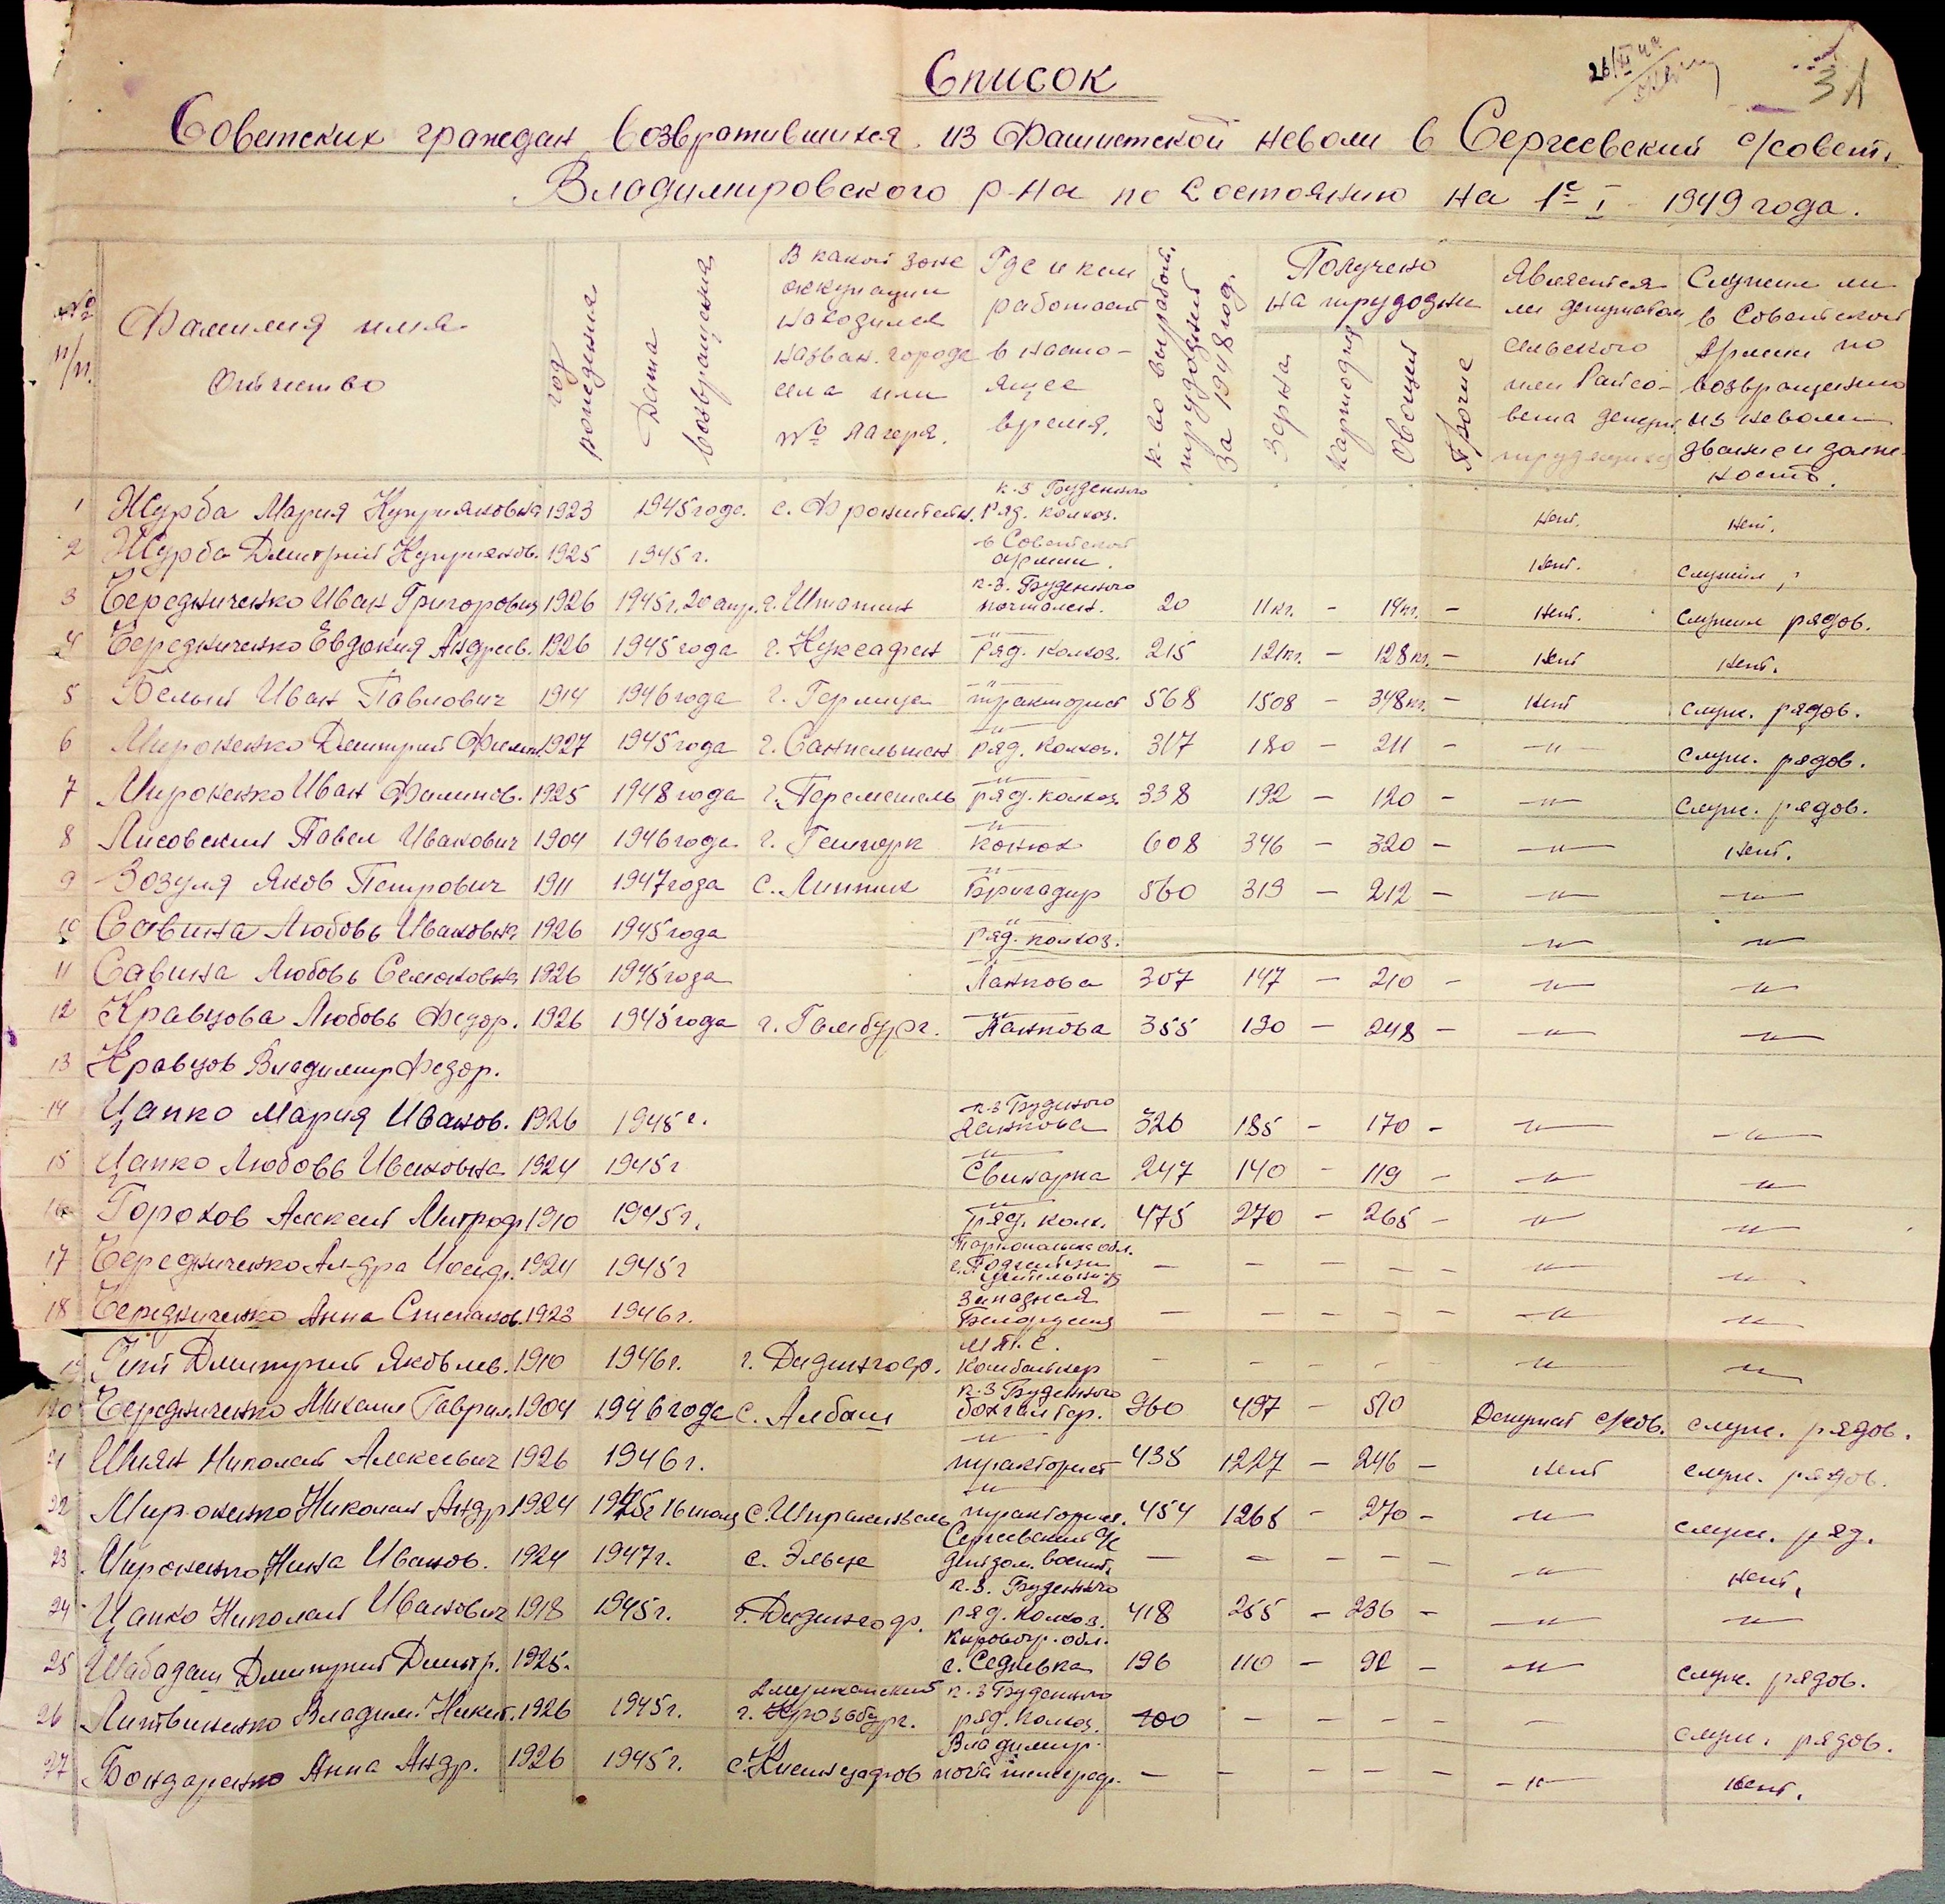 26/XI 49
31
Список
Советских граждан возвратившихся из Фашистской неволи в Сергеевский с/совет.
Владимировского р-на по состоянию на 1е I 1949 года.
№ п/п. Фамилия имя Отчество год рождения Дата возвращения В какой зоне оккупации находился назван. города села или № лагеря. Где и кем работает в настоящее время. к-во выработ. трудодней за 1948 год. Получено на трудодни Зерна Картофля Овощей Прочие Является ли депутатом сельского или Райсовета депут. трудящихся Служил ли в Советской Армии по возвращению из неволи звание и должность.
1 Журба Мария Куприяновна 1923 1945 года. с. Фронштейн. к-з Буденного ряд. колхоз. нет. нет.
2 Журба Дмитрий Куприянов. 1925 1945 г. в Советской армии. нет. служил
3 Чередниченко Иван Григорович 1926 1945 г. 20 апр. г. Штатин к-з. Буденного почтальен. 20 11 кг. - 14 кг. - нет. служил рядов.
4 Чередниченко Евдокия Андреев. 1926 1945 года г. Куксафен -"- ряд. колхоз. 215 121 кг. - 128 кг. - нет нет.
5 Белый Иван Павлович 1914 1946 года г. Герлица -"- тракторист 568 1508 - 348 кг. - нет служ. рядов.
6 Мироненко Дмитрий Филип. 1927 1945 года г. Санпельтен -"- ряд. колхоз. 317 180 - 211 - -"- служ. рядов.
7 Мироненко Иван Филипов. 1925 1948 года г. Перемешель -"- ряд. колхоз 338 192 - 120 - -"- служ. рядов.
8 Лисовский Павел Иванович 1904 1946 года. г. Гешторк -"- конюх 608 346 - 320 - -"- нет.
9 Зозуля Яков Петрович 1911 1947 года с. Линник -"- Бригадир 560 319 - 212 - -"- -"-
10 Савина Любовь Ивановна 1926 1945 года -"- ряд. колхоз. -"- -"-
11 Савина Любовь Семеновна 1926 1945 года -"- Ланкова 307 147 - 210 - -"- -"-
12 Кравцова Любовь Федор. 1926 1945 года г. Гамбург. -"- Ланкова 355 190 - 248 - -"- -"-
13 Кравцов Владимир Федор.
14 Цапко Мария Иванов. 1926 1945 г. к-з Буденого Ланкова 326 185 - 170 - -"- -"-
15 Цапко Любовь Ивановна 1924 1945 г -"- Свинарка 247 140 - 119 - -"- -"-
16 Горохов Алексей Митроф. 1910 1945 г. -"- ряд. колх. 475 270 - 265 - -"- -"-
17 Чередниченко Ал-дра Исид. 1924 1945 г Тарнопольск обл. учительница - - - - - -"- -"-
18 Чередниченко Анна Степанов. 1923 1946 г. Западная Белорусия - - - - - -"- -"-
19 Дмитрий Яковлев. 1910 1946 г. г. Дедингоф. М.Т.С. Комбайнер - - - - -"- -"-
20 Чередниченко Михаил Гаврил. 1904 1946 года с. Албаш к-з Буденного бохгалтер. 960 497 - 510 Депутат с/сов. служ. рядов.
21 Шиян Николай Алексеевич 1926 1946 г. -"- тракторист 435 1227 - 246 - нет служ. рядов.
22 Мироненко Николай Андр. 1924 1945 г 16 июня с. Шпракензель -"- тракторист. 454 1268 - 270 - -"- служ. ряд.
23 Мироненко Нина Иванов. 1924 1947 г. с. Эльце Сергеевский детдом. воспит. - - - - - -"- нет.
24 Цапко Николай Иванович 1918 1945 г. г. Дедингоф. к.з. Буденного ряд. колхоз. 418 255 - 236 - -"- -"-
25 Шабадаш Дмитрий Дмитр. 1925. Кировогр. обл. с. Седневка 196 110 - 92 - -"- служ. рядов.
26 Литвиненко Владим. Никит. 1926 1945 г. Американский г. Крозебург. к-з Буденного ряд. колхоз. 100 - - - - - служ. рядов.
27 Бондаренко Анна Андр. 1926 1945 г. с. Кисинцадров Владимир. почта телеграф. - - - - - -"- нет.